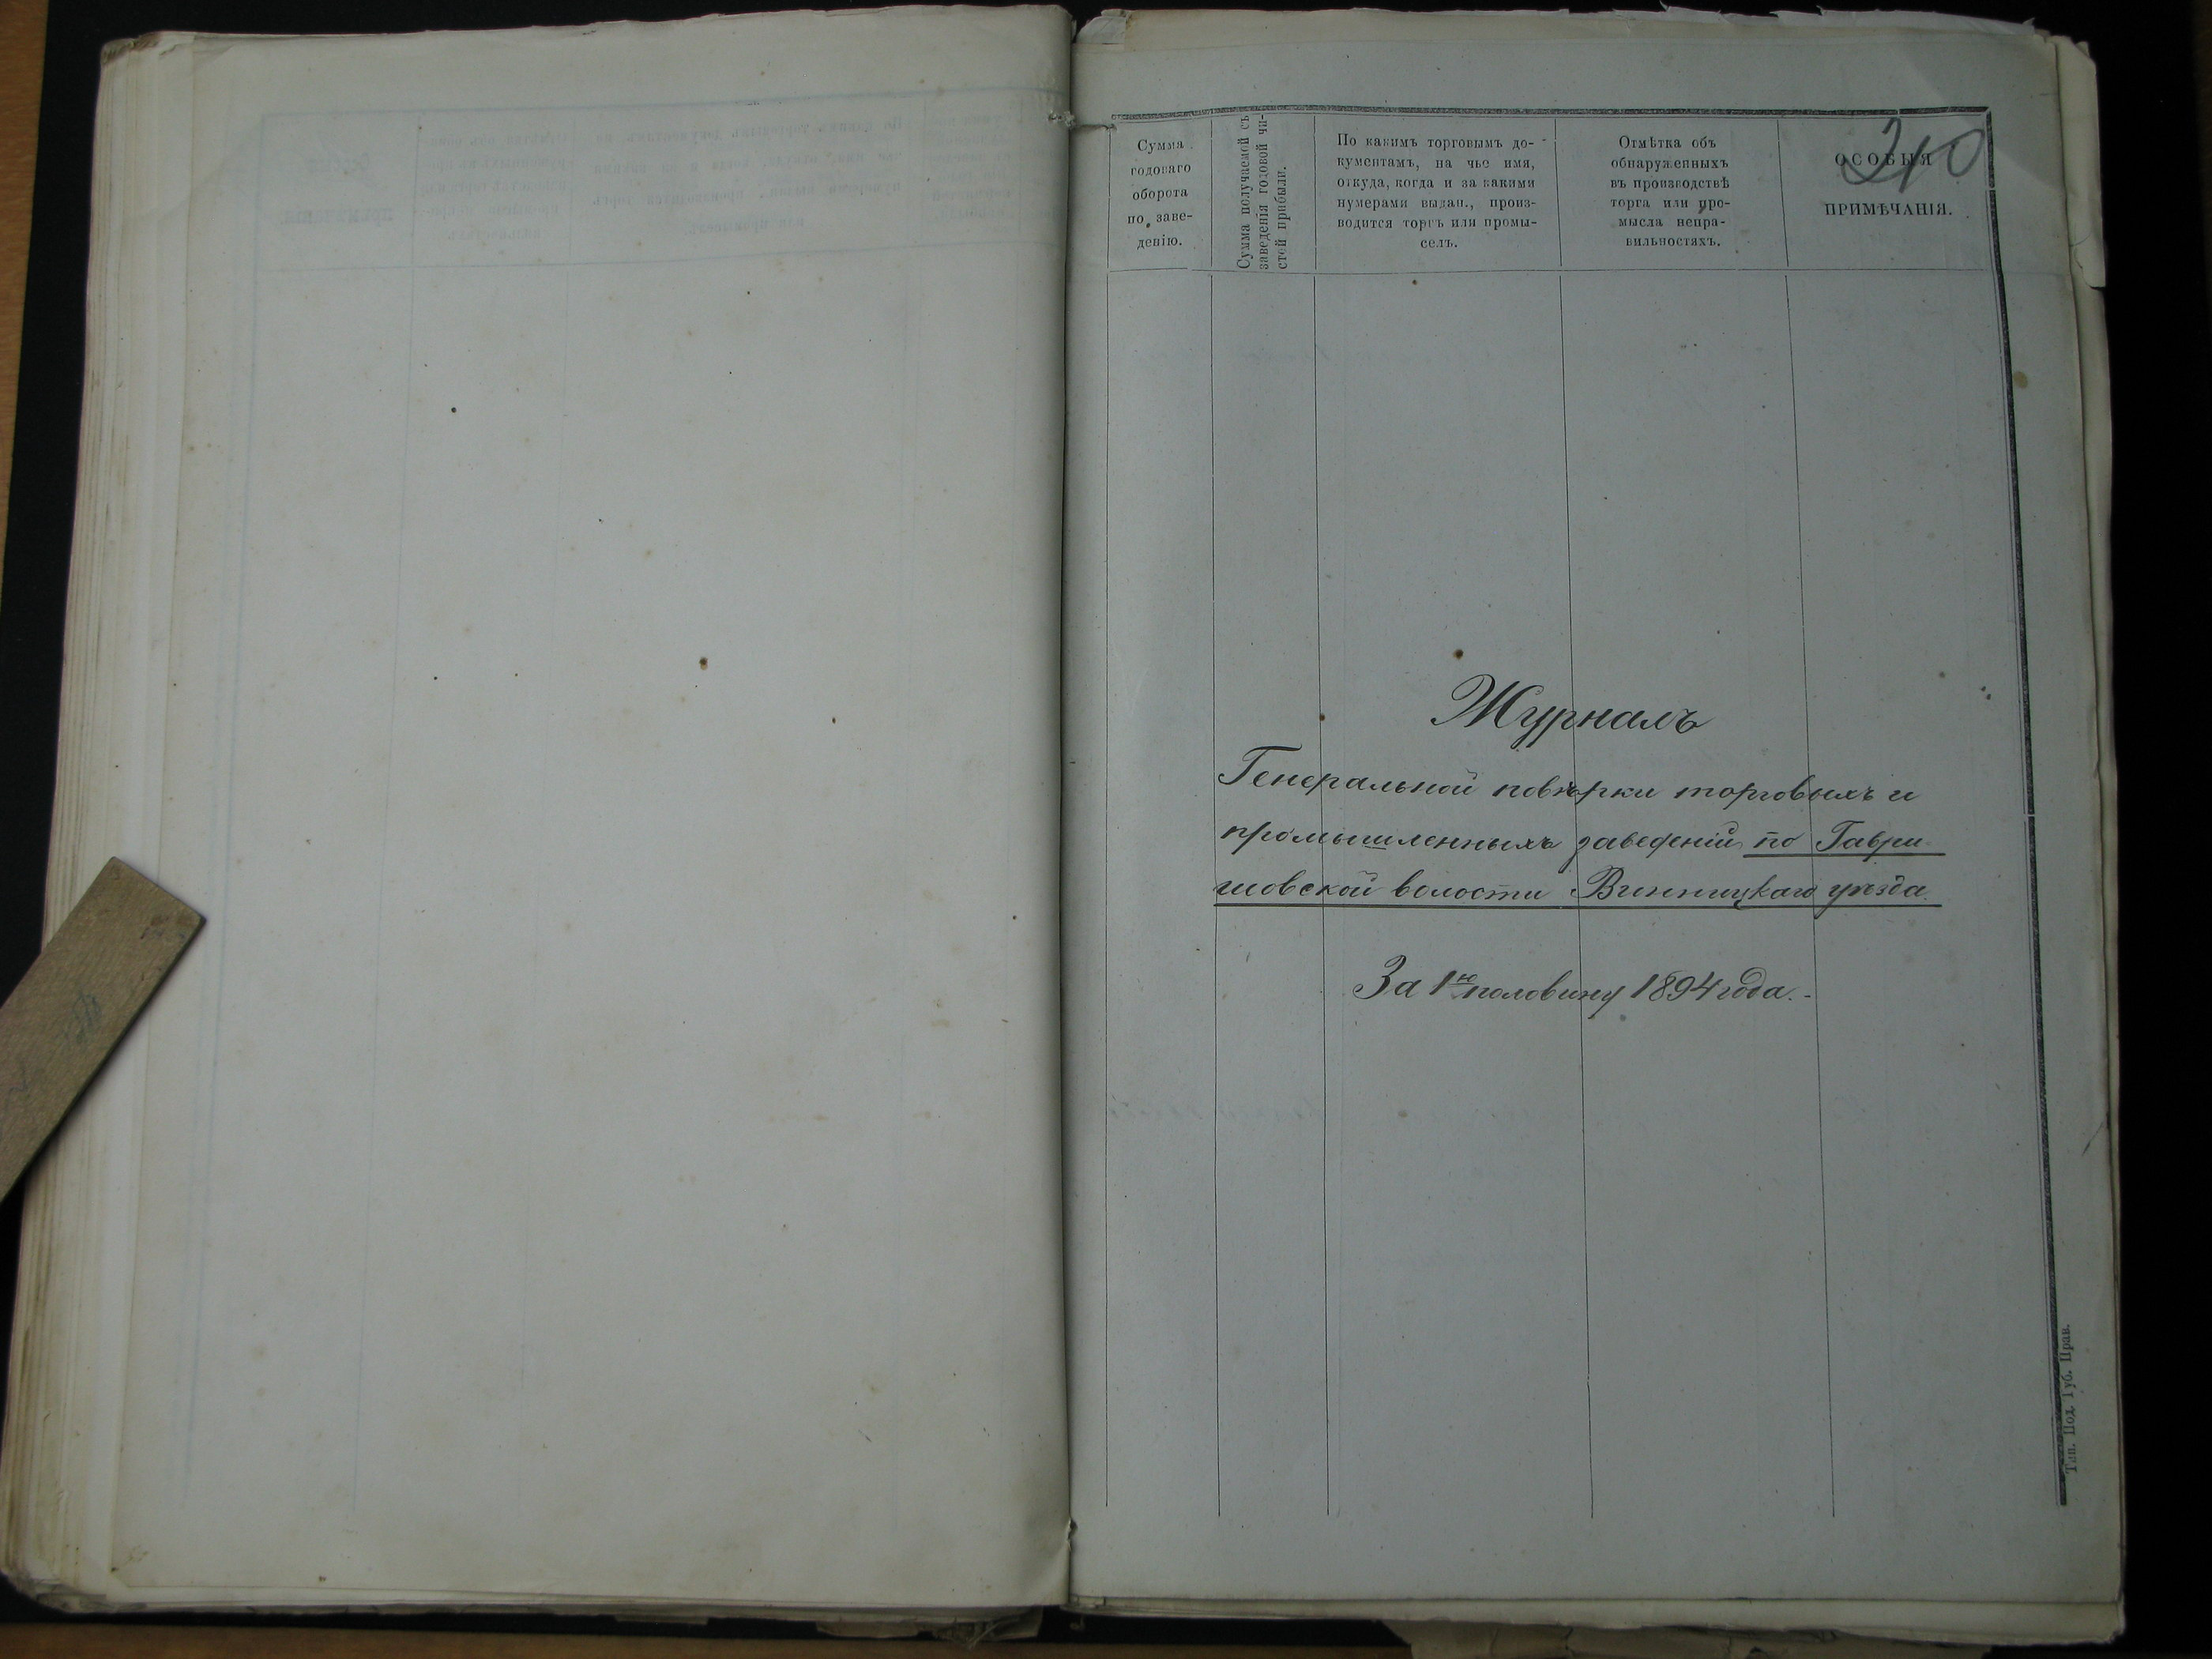 210
Сумма
годоваго
оборота
по заве-
денію.
Сумма получаемой съ
заведенія годовой чи-
стой прибыли.
По какимъ торговымъ до-
кументамъ, на чье имя,
откуда, когда и за какими
нумерами выдан., произ-
водится торгъ или промы-
селъ.
Отмѣтка объ
обнаруженныхъ
въ производствѣ
торга или про-
мысла непра-
вильностяхъ.
ОСОБЫЯ
ПРИМѢЧАНІЯ.
Журналъ
Генеральной повѣрки торговыхъ и
промышленныхъ заведеній по Гаври-
шовской волости Винницкаго уѣзда.
За 1ю половину 1894 года.-
Тип. Под. Губ. Прав.